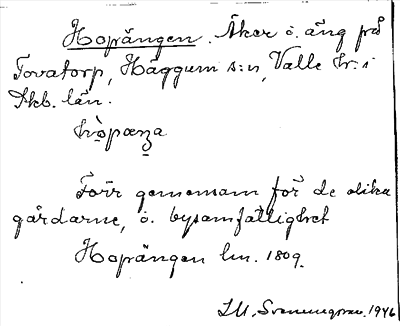 Hopängen. Åker o. äng på
Tovatorp, Häggum s:n, Valle hr: i
Skb. län.
hòpæŋa
Förr gemensam för de olika
gårdarne, o. bysamfällighet
Hopängen lm. 1809.
1946